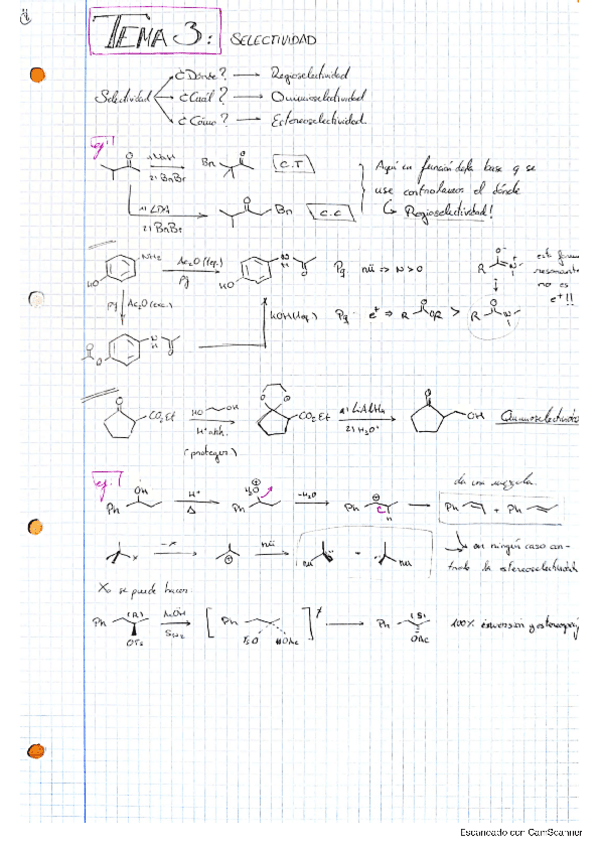 TEMA 3: SELECTIVIDAD
¿Dónde? → Regioselectividad
Selectividad ¿Cuál? → Quimioselectividad
¿Cómo? → Estereoselectividad
ej.1
1) NaH
2) BnBr
Br
C.T
Aquí en función de la base q se
use controlamos el dónde
↳ Regioselectividad!
1) LDA
2) BnBr
Bn
C.C
NH2
HO
Ac2O (1eq.)
py
HO
Pq nü => N > O
py Ac2O (exc.)
KOH (1eq.)
Pq e+ => R OR > R N
CO2Et
HO OH
H+ cat.
(proteger)
CO2Et
1) LiAlH4
2) H3O+
OH
Quimioselectividad
ej.
da una mezcla.
Ph OH
H+
Δ
Ph H2O
-H2O
Ph
Ph + Ph
-X
nü
nu
nu
↳ en ningún caso con-
trolo la estereoselectividad
X se puede hacer
Ph (R)
OTs
AcOH
SN2
Ph
TsO HOAc
Ph (S)
OAc
100% inversión